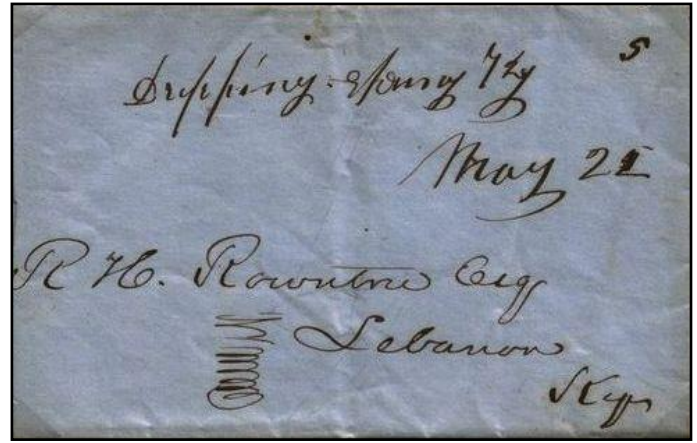 5
Dripping Spring Ky
May 21
R H. Rowntree Esq
Lebanon
Ky